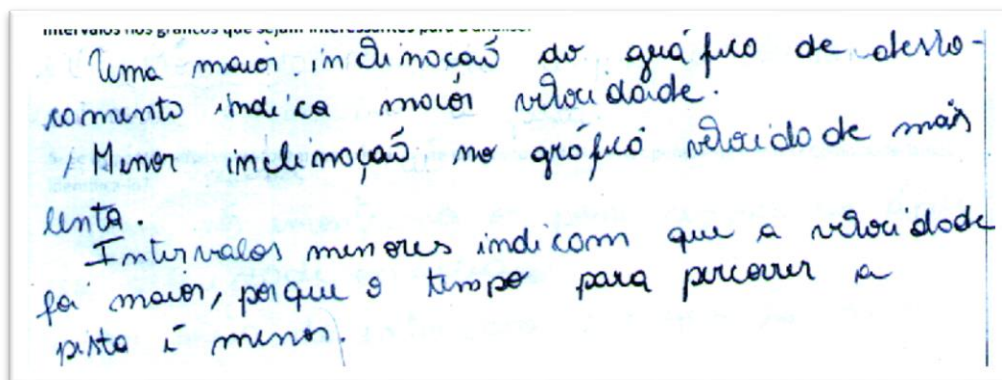 intervalos nos gráficos que sejam interessantes para a análise.
Uma maior inclinação do gráfico de deslo-
camento indica maior velocidade.
Menor inclinação no gráfico velocidade mais
lenta.
Intervalos menores indicam que a velocidade
foi maior, porque o tempo para percorrer a
pista é menor.